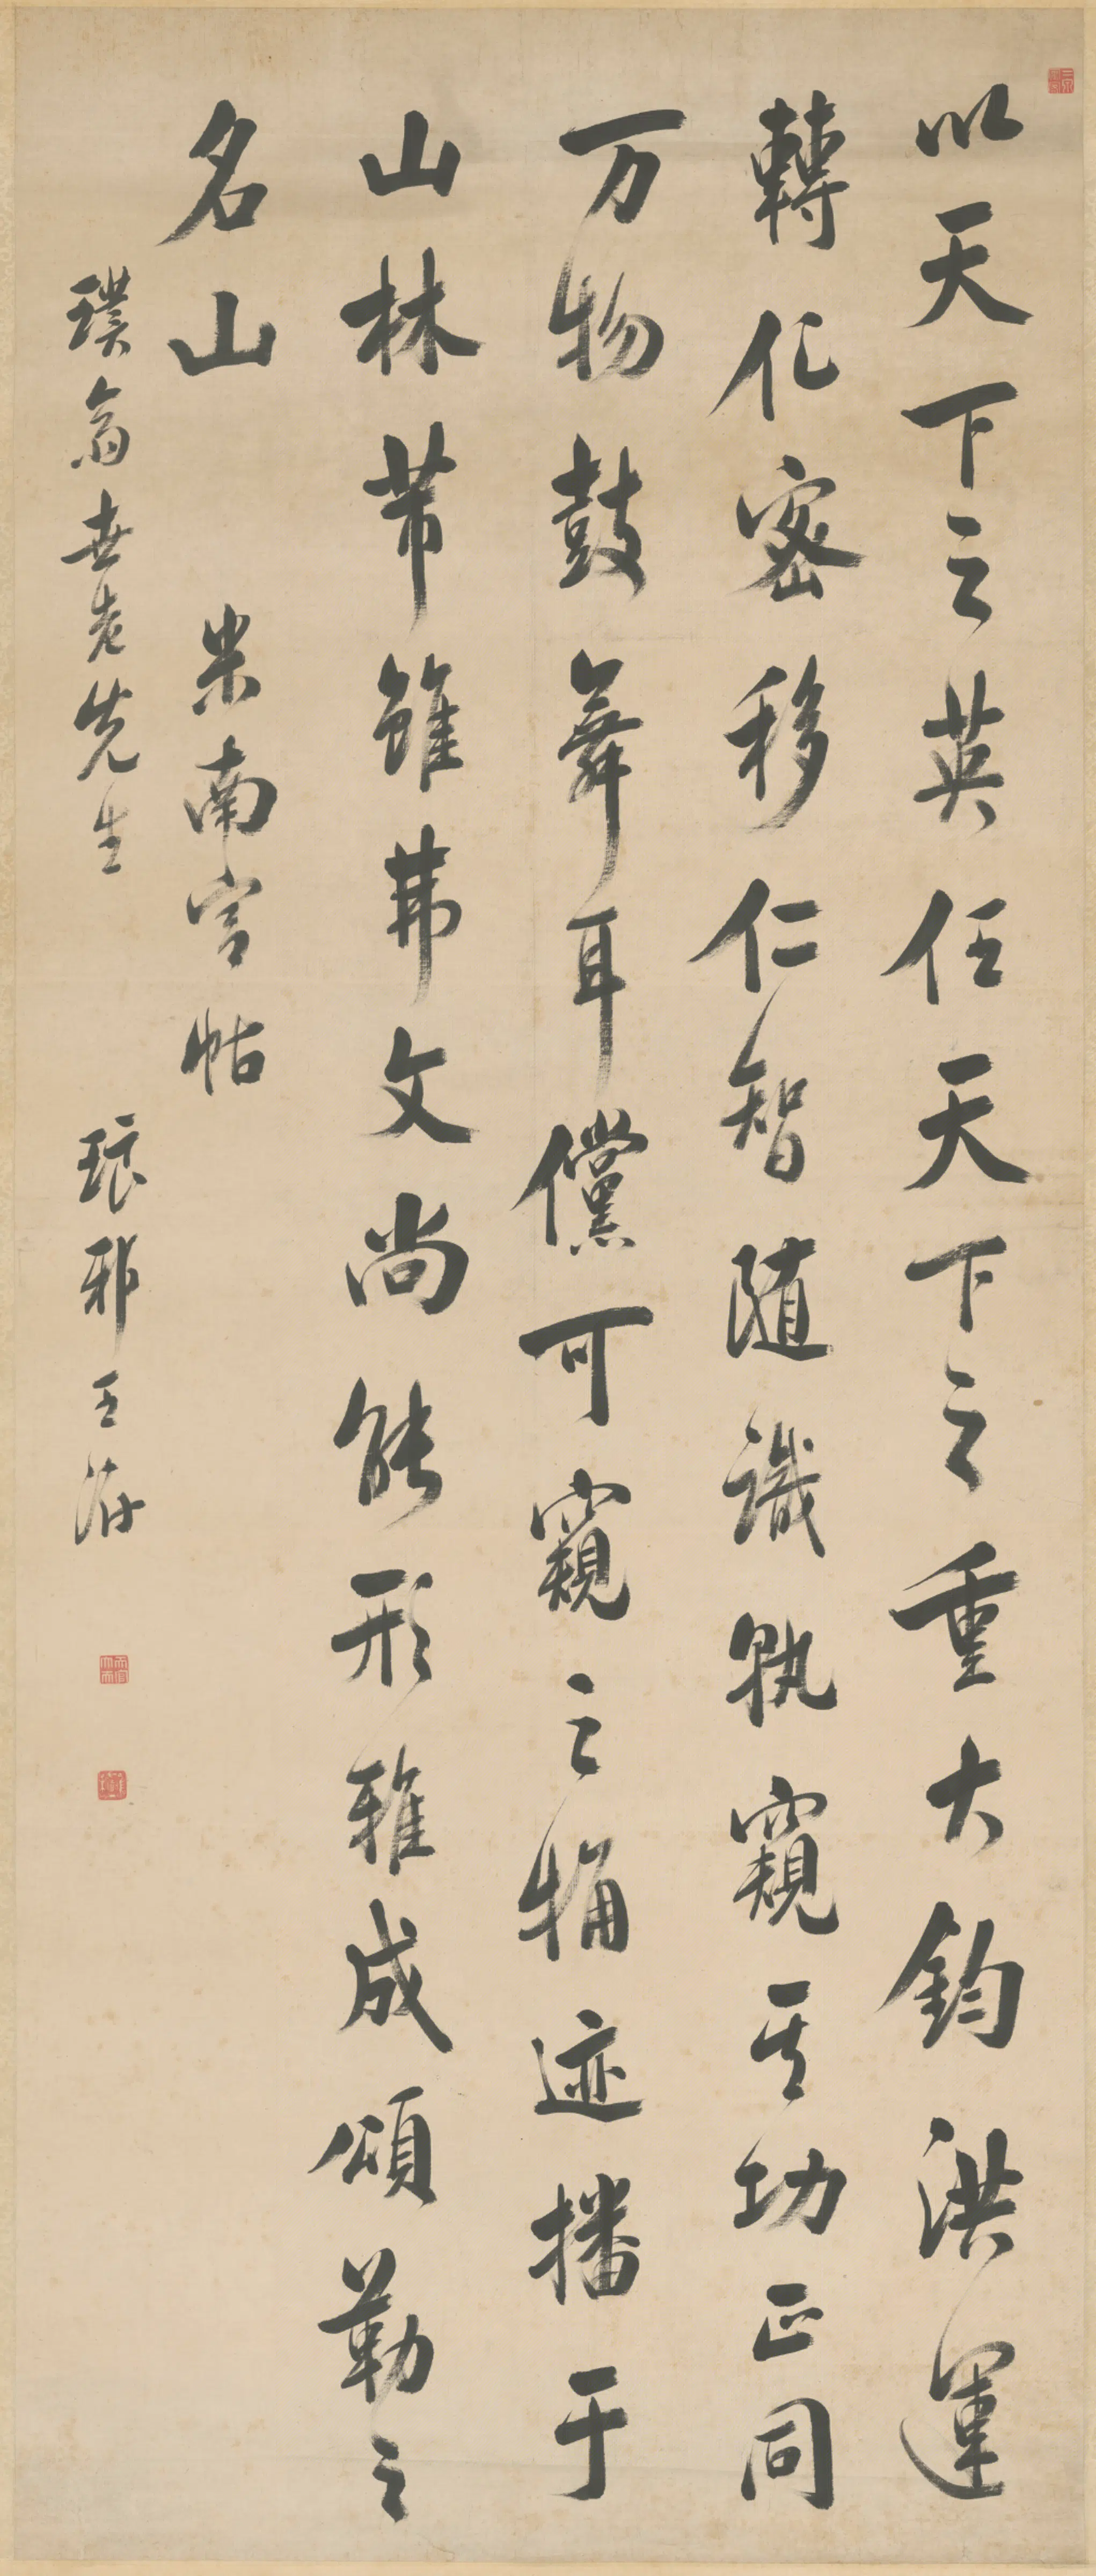 以天下之英任天下之重大鈞洪運
轉化密移仁智随識孰窺其功正同
万物鼓舞耳儻可窺之觕迹播于
山林芾雖茀文尚能形雅成頌勒之
名山 米南宮帖
璞翁世老先生 琅邪王